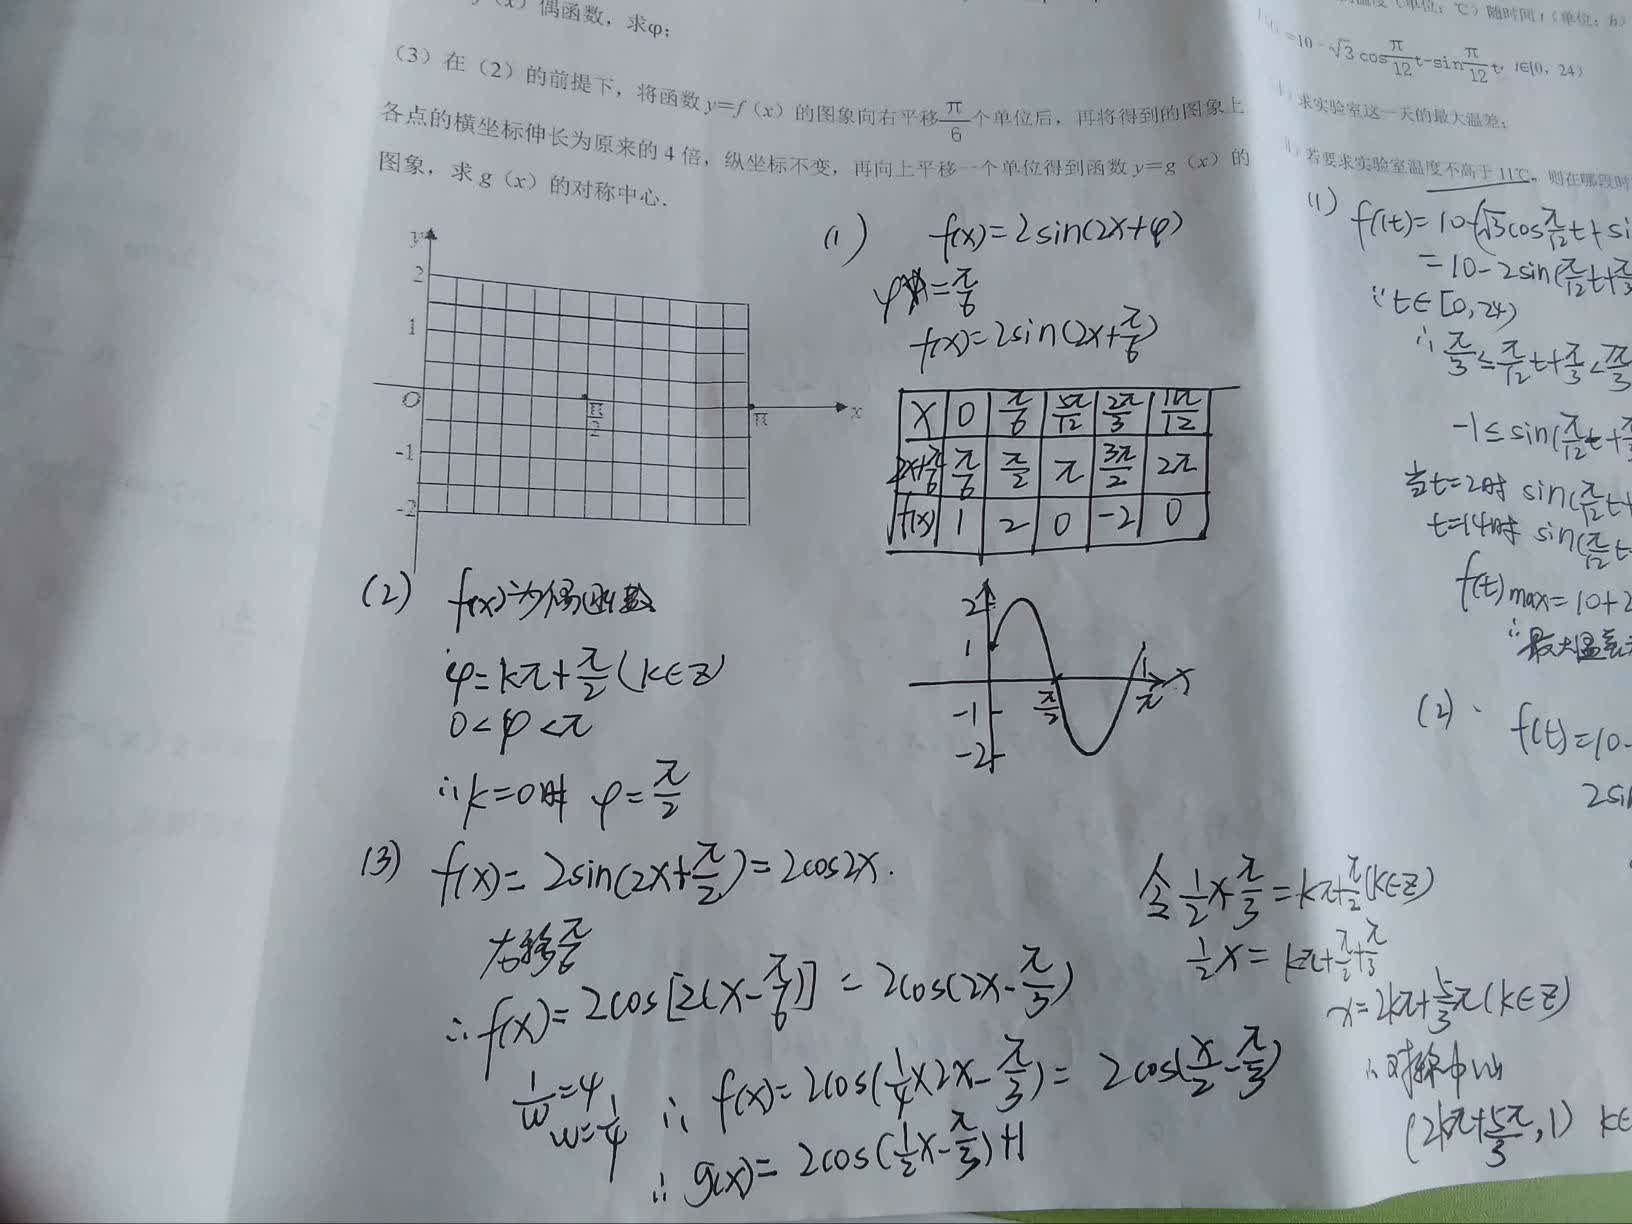 (x)偶函数，求φ；
(3)在(2)的前提下，将函数y=f(x)的图象向右平移π/6个单位后，再将得到的图象上
各点的横坐标伸长为原来的4倍，纵坐标不变，再向上平移一个单位得到函数y=g(x)的
图象，求g(x)的对称中心.
y
2
1
O
-1
-2
π/2
π
x
(1) f(x)=2sin(2x+φ)
φ=π/6
f(x)=2sin(2x+π/6)
x 0 π/6 5π/12 2π/3 11π/12
2x+π/6 π/6 π/2 π 3π/2 2π
f(x) 1 2 0 -2 0
2
1
-1
-2
π x
(2) f(x)为偶函数
φ=kπ+π/2(k∈Z)
0<φ<π
∴k=0时 φ=π/2
(3) f(x)=2sin(2x+π/2)=2cos2x.
右移π/6
∴f(x)=2cos[2(x-π/6)]=2cos(2x-π/3)
1/w=4
w=1/4
∴f(x)=2cos(1/4×2x-π/3)=2cos(x/2-π/3)
∴g(x)=2cos(1/2x-π/3)+1
令1/2x-π/3=kπ+π/2(k∈Z)
1/2x=kπ+π/2+π/3
x=2kπ+5/3π(k∈Z)
∴对称中心
(2kπ+5π/3,1) k∈
(单位：℃)随时间t(单位：h)
=10-√3cosπ/12t-sinπ/12t，t∈[0，24)
求实验室这一天的最大温差；
若要求实验室温度不高于11℃，则在哪段时
(1) f(t)=10-(√3cosπ/12t+si
=10-2sin(π/12t+π/3
∵t∈[0,24)
∴π/3≤π/12t+π/3<7π/3
-1≤sin(π/12t+π/3
当t=2时 sin(π/12t+
t=14时 sin(π/12t+
f(t)max=10+2
∴最大温差
(2) f(t)=10-
2sin